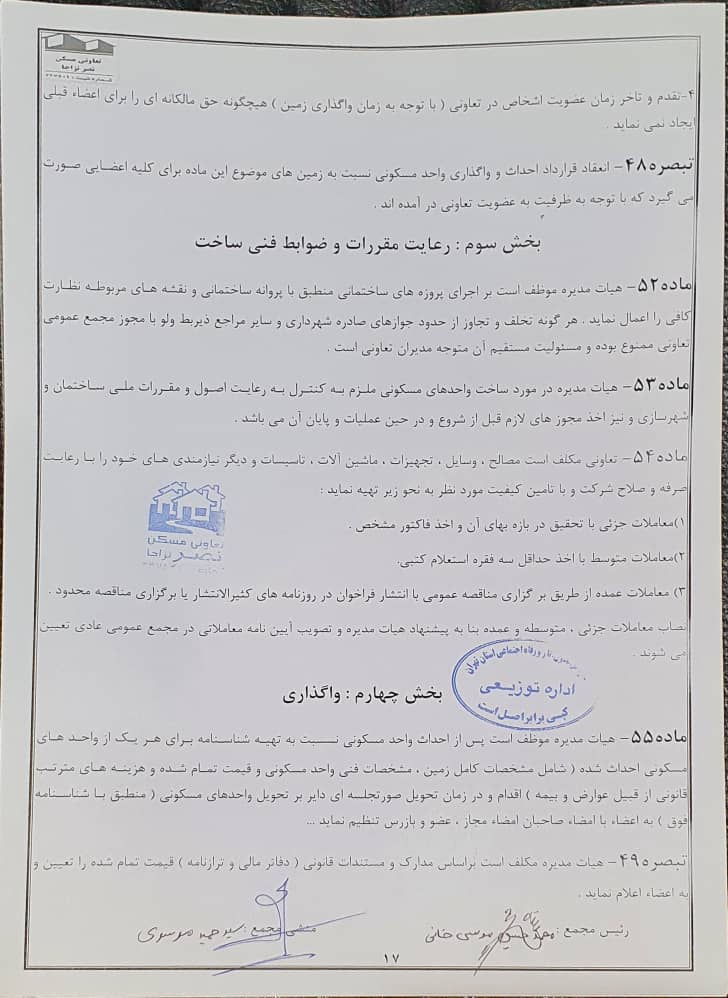 تعاونی مسکن
نصر نزاجا
۴-تقدم و تاخر زمان عضویت اشخاص در تعاونی ( با توجه به زمان واگذاری زمین ) هیچگونه حق مالکانه ای را برای اعضاء قبلی
ایجاد نمی نماید .
تبصره۴۸- انعقاد قرارداد احداث و واگذاری واحد مسکونی نسبت به زمین های موضوع این ماده برای کلیه اعضایی صورت
می گیرد که با توجه به ظرفیت به عضویت تعاونی در آمده اند .
بخش سوم : رعایت مقررات و ضوابط فنی ساخت
ماده۵۲- هیات مدیره موظف است بر اجرای پروزه های ساختمانی منطبق با پروانه ساختمانی و نقشه های مربوطه نظارت
کافی را اعمال نماید . هر گونه تخلف و تجاوز از حدود جوازهای صادره شهرداری و سایر مراجع ذیربط ولو با مجوز مجمع عمومی
تعاونی ممنوع بوده و مسئولیت مستقیم آن متوجه مدیران تعاونی است .
ماده۵۳- هیات مدیره در مورد ساخت واحدهای مسکونی ملزم به کنترل به رعایت اصول و مقررات ملی ساختمان و
شهرسازی و نیز اخذ مجوز های لازم قبل از شروع و در حین عملیات و پایان آن می باشد .
ماده۵۴- تعاونی مکلف است مصالح ، وسایل ، تجهیزات ، ماشین آلات ، تاسیسات و دیگر نیازمندی های خود را با رعایت
صرفه و صلاح شرکت و با تامین کیفیت مورد نظر به نحو زیر تهیه نماید :
۱)معاملات جزئی با تحقیق در بازه بهای آن و اخذ فاکتور مشخص .
۲)معاملات متوسط با اخذ حداقل سه فقره استعلام کتبی.
تعاونی مسکن
نصر نزاجا
۳) معاملات عمده از طریق بر گزاری مناقصه عمومی با انتشار فراخوان در روزنامه های کثیرالانتشار یا برگزاری مناقصه محدود .
نصاب معاملات جزئی ، متوسطه و عمده بنا به پیشنهاد هیات مدیره و تصویب آیین نامه معاملاتی در مجمع عمومی عادی تعیین
می شوند .
کار و رفاه اجتماعی استان تهران
اداره توزیعی
کپی برابر اصل است
بخش چهارم : واگذاری
ماده۵۵- هیات مدیره موظف است پس از احداث واحد مسکونی نسبت به تهیه شناسنامه برای هر یک از واحد های
مسکونی احداث شده ( شامل مشخصات کامل زمین ، مشخصات فنی واحد مسکونی و قیمت تمام شده و هزینه های مترتب
قانونی از قبیل عوارض و بیمه ) اقدام و در زمان تحویل صورتجلسه ای دایر بر تحویل واحدهای مسکونی ( منطبق با شناسنامه
فوق ) به اعضاء با امضاء صاحبان امضاء مجاز ، عضو و بازرس تنظیم نماید ...
تبصره۴۹- هیات مدیره مکلف است براساس مدارک و مستندات قانونی ( دفاتر مالی و ترازنامه ) قیمت تمام شده را تعیین و
به اعضاء اعلام نماید .
رئیس مجمع : موسی خانی
منشی مجمع : سید حمید موسوی
۱۷